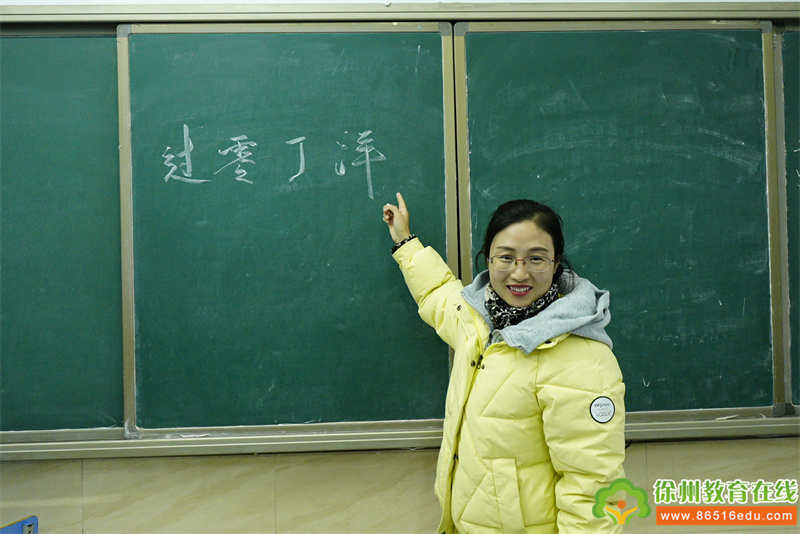 过零丁洋
徐州教育在线
www.86516edu.com